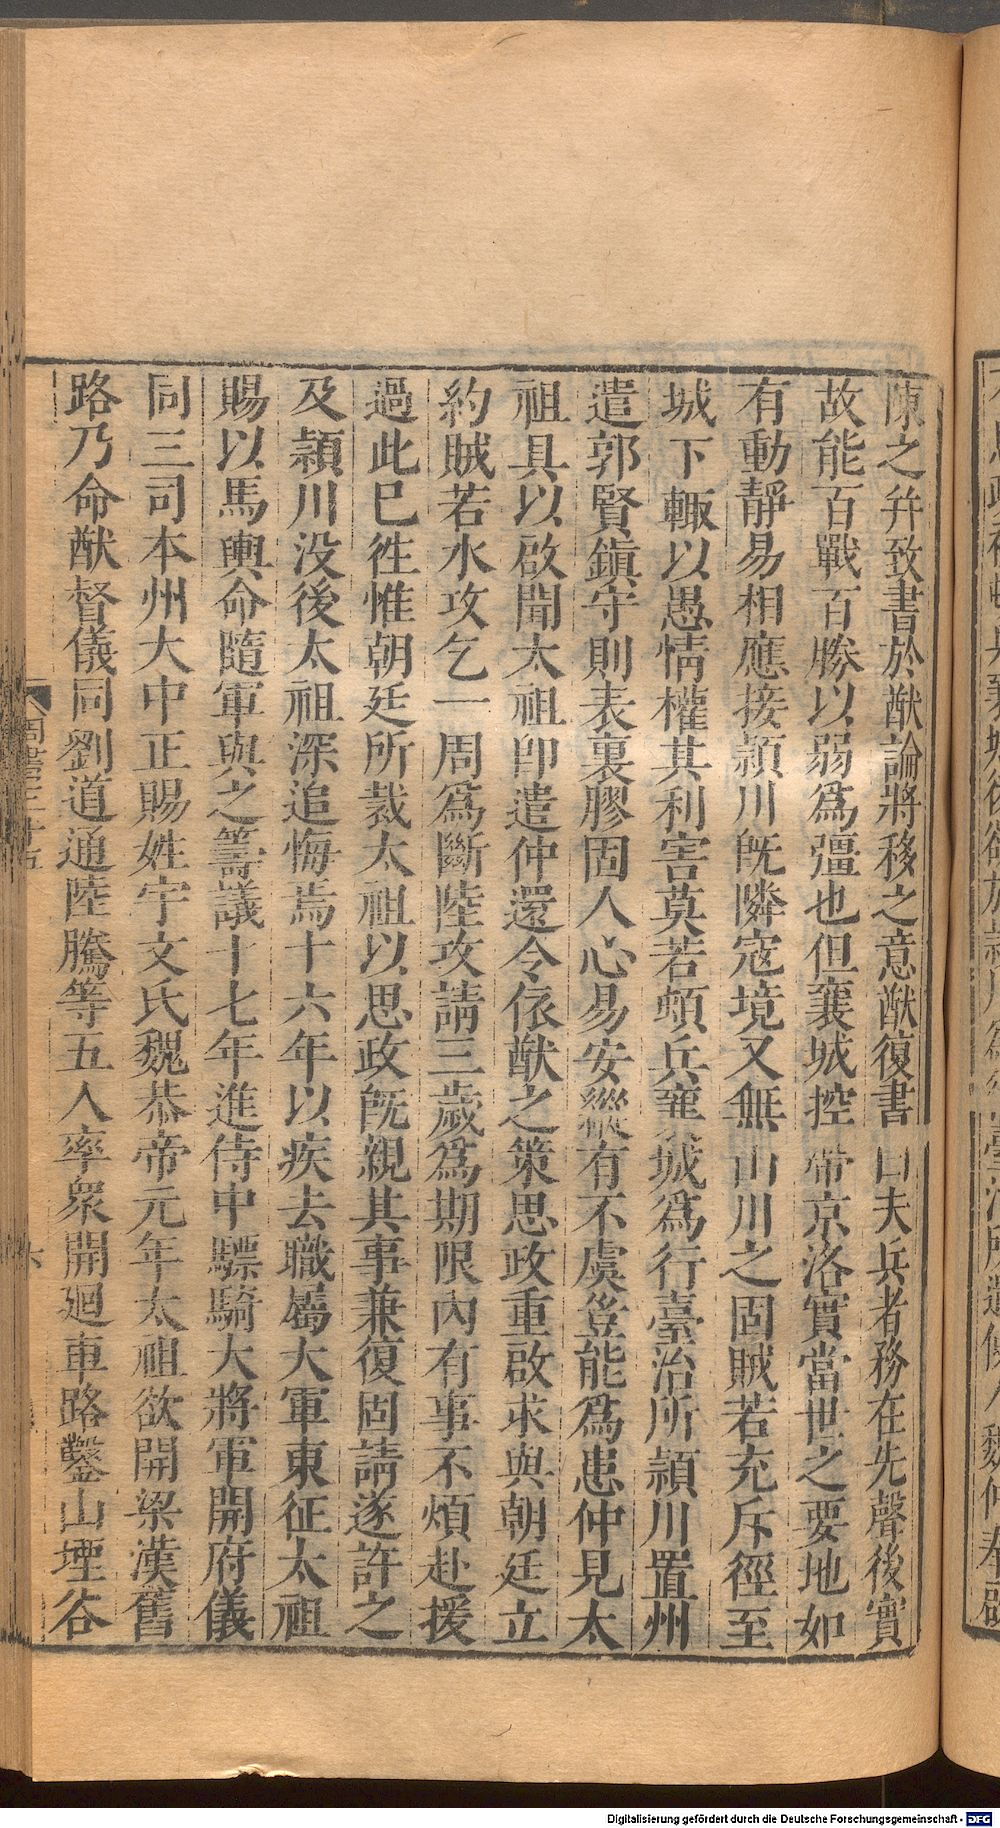 陳之并致書於猷論將移之意猷復書曰夫兵者務在先聲後實
故能百戰百勝以弱爲彊也但襄城控帶京洛實當世之要地如
有動靜易相應接潁川旣隣寇境又無山川之固賊若充斥徑至
城下輙以愚情權其利害莫若頓兵襄城爲行臺治所潁川置州
遣郭賢鎭守則表裏膠固人心易安縱有不虞豈能爲患仲見太
祖具以啟聞太祖即遣仲還令依猷之策思政重啟求與朝廷立
約賊若水攻乞一周爲斷陸攻請三歲爲期限內有事不煩赴援
過此已徃惟朝廷所裁太祖以思政旣親其事兼復固請遂許之
及潁川没後太祖深追悔焉十六年以疾去職屬大軍東征太祖
賜以馬輿命隨軍與之籌議十七年進侍中驃騎大將軍開府儀
同三司本州大中正賜姓宇文氏魏恭帝元年太祖欲開梁漢舊
路乃命猷督儀同劉道通陸騰等五人率衆開廻車路鑿山堙谷
周書三十五
六
Digitalisierung gefördert durch die Deutsche Forschungsgemeinschaft - DFG